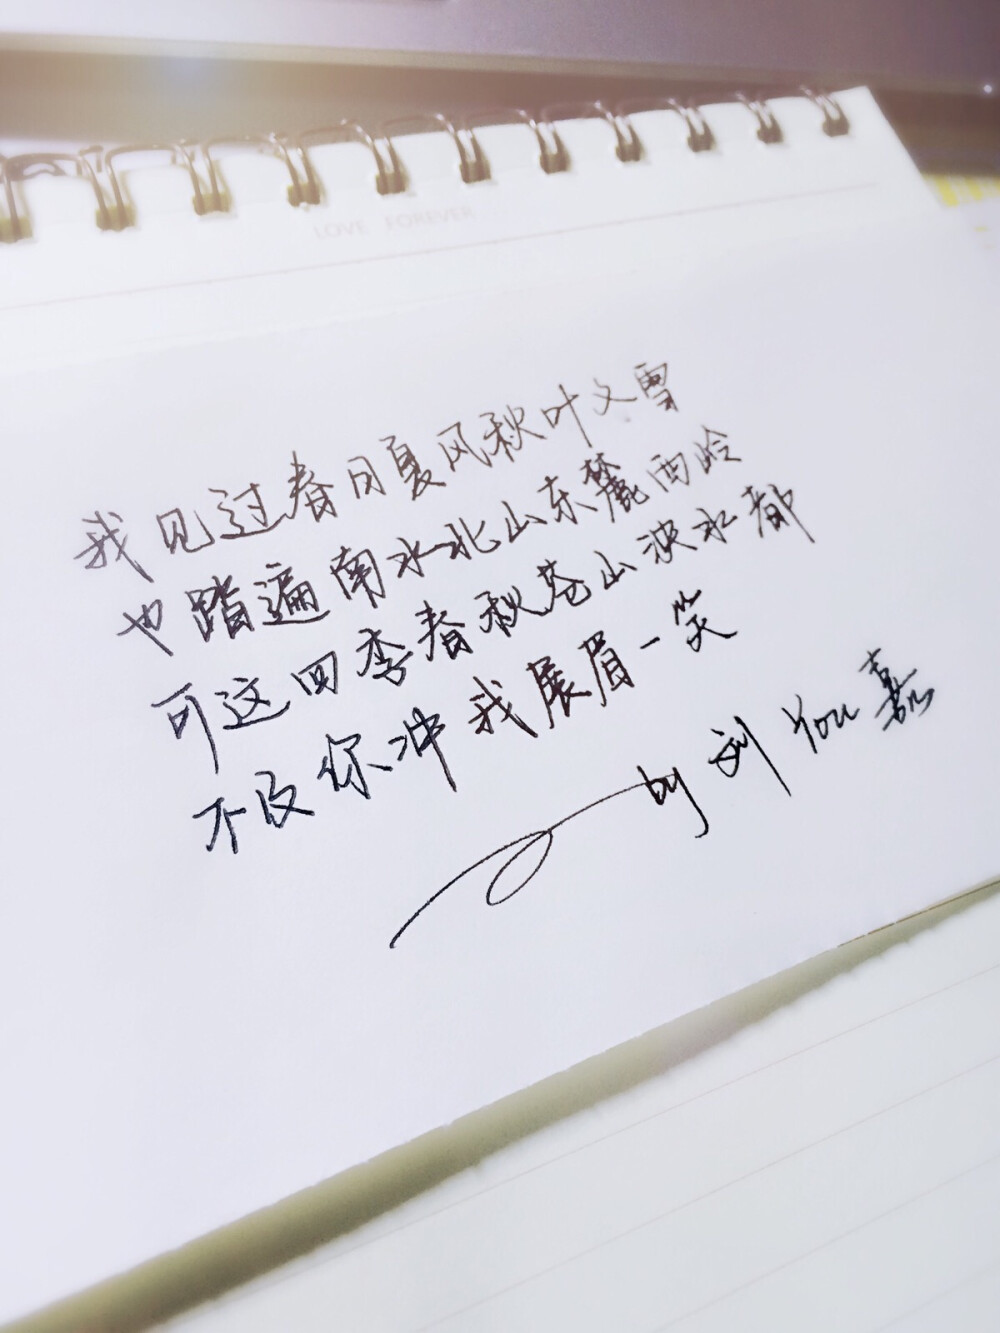 LOVE FOREVER
我见过春日夏风秋叶冬雪
也踏遍南水北山东麓西岭
可这四季春秋苍山泱水都
不及你冲我展眉一笑
by 刘 You 嘉